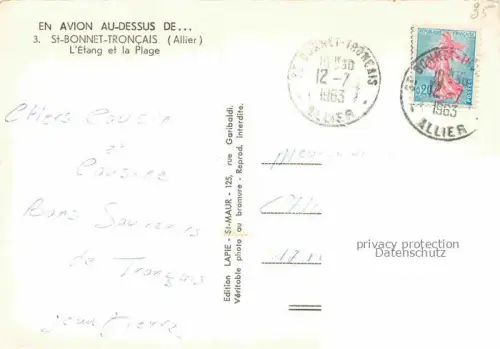 EN AVION AU-DESSUS DE...
3. St-BONNET-TRONÇAIS (Allier)
L'Étang et la Plage
Chers Cousin
et
Cousine
Bons Souvenirs
de Tronçais
Jean Pierre
Edition LAPIE - St-MAUR - 125, rue Garibaldi.
Véritable photo au bromure - Reprod. interdite.
ST BONNET-TRONÇAIS
12-7
1963
ALLIER
0,20
12-7
1963
ALLIER
35
17
privacy protection
Datenschutz